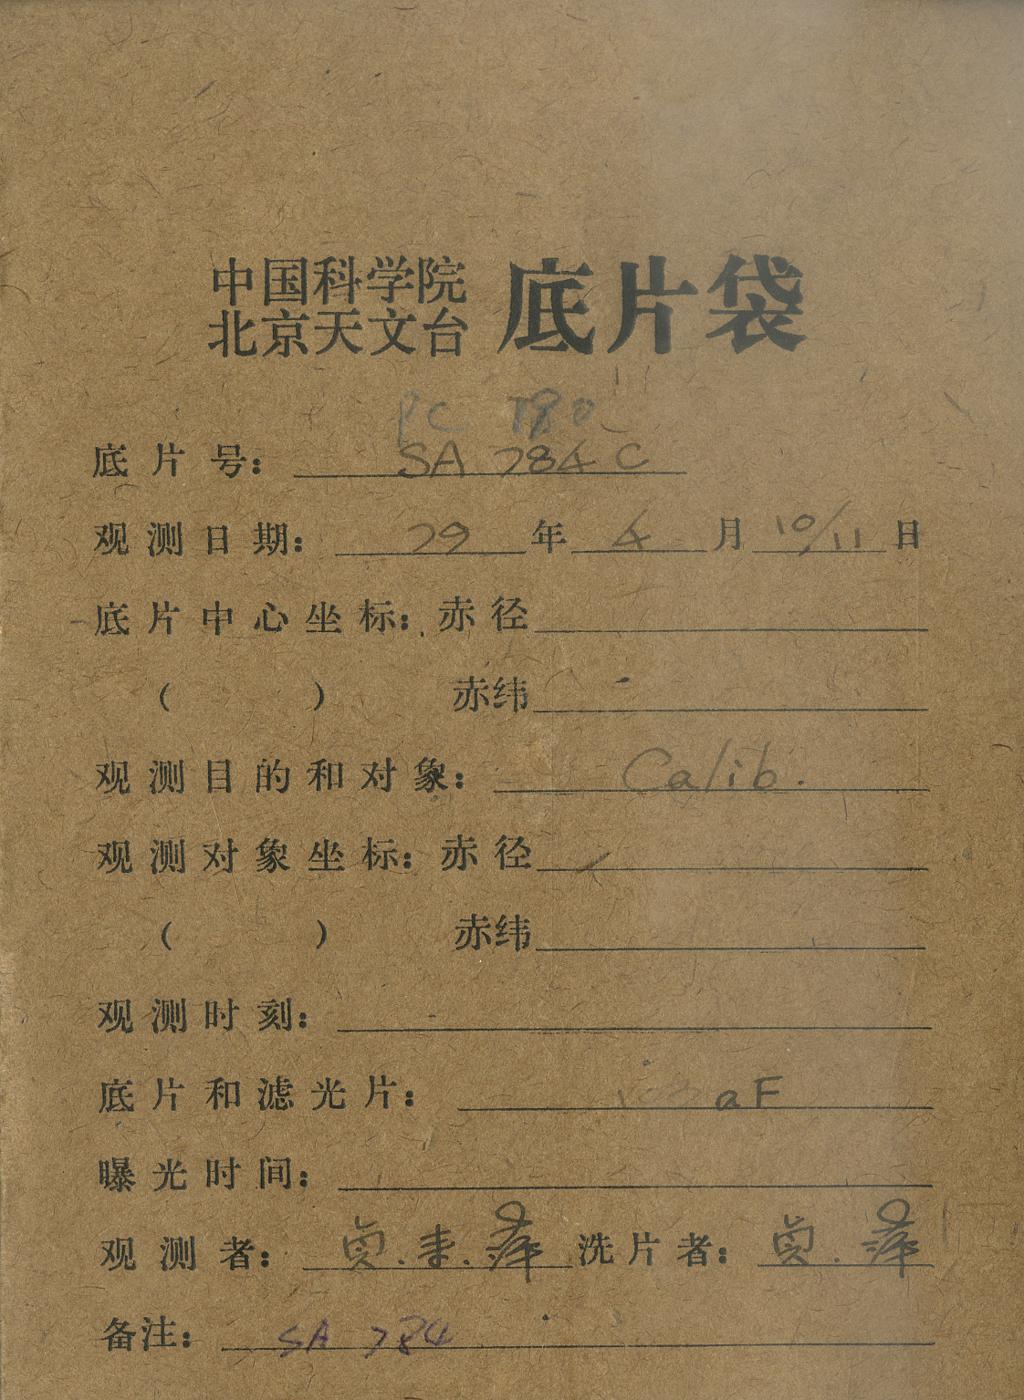 中国科学院
北京天文台 底片袋
PC 780
底片号: SA 784 C
观测日期: 79 年 4 月 10/11 日
底片中心坐标: 赤径
( ) 赤纬
观测目的和对象: Calib.
观测对象坐标: 赤径
( ) 赤纬
观测时刻:
底片和滤光片: aF
曝光时间:
观测者: 贞. 洗片者: 贞.
备注: SA 784